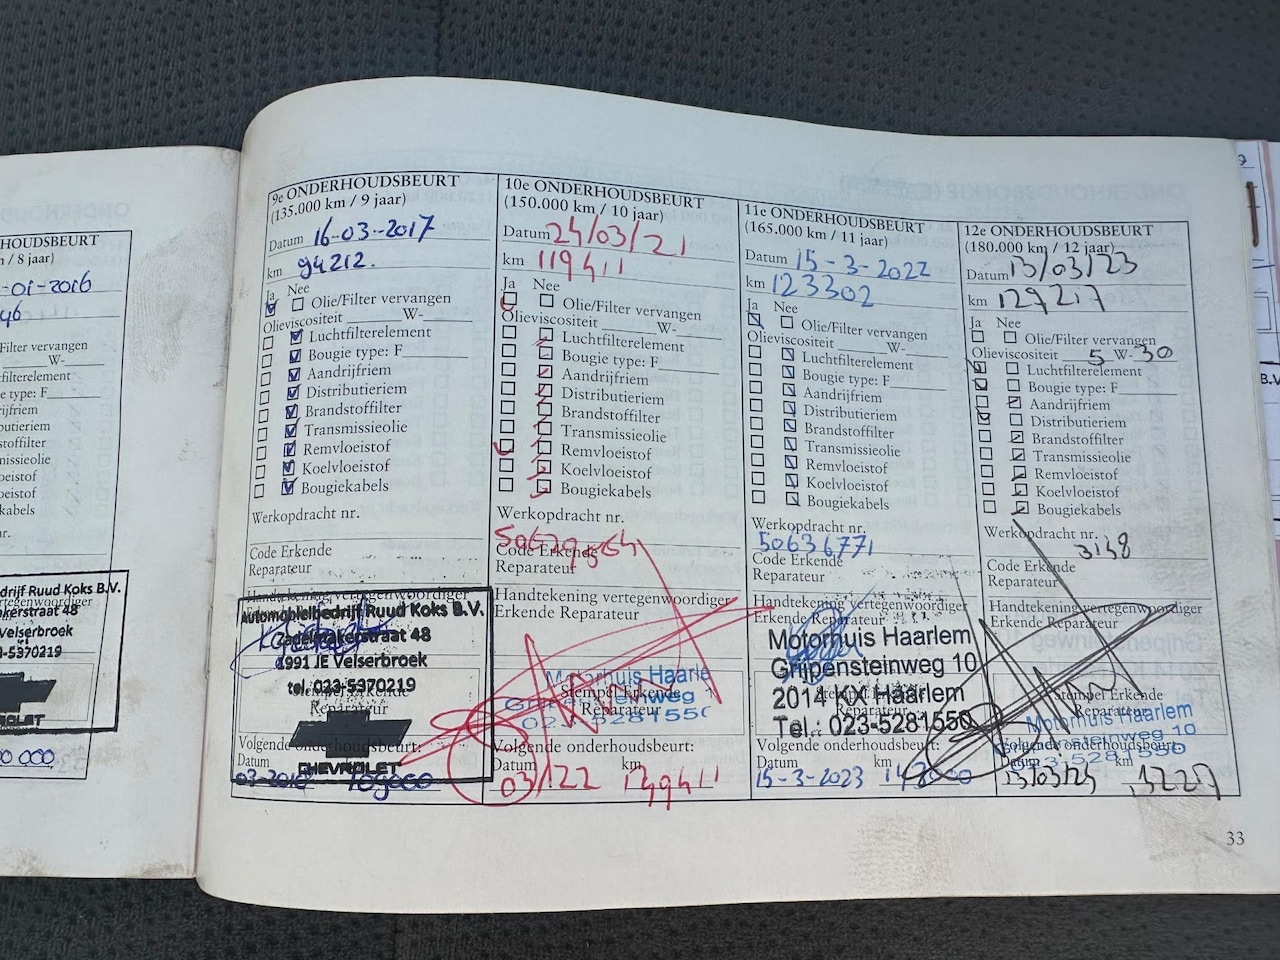 HOUDSBEURT
/ 8 jaar)
-01-2016
46
Filter vervangen
W-
filterelement
e type: F
drijfriem
butieriem
stoffilter
missieolie
loeistof
oeistof
kabels
nr.
drijf Ruud Koks B.V.
kerstraat 48
Velserbroek
3-5370219
CHEVROLET
00 000
9e ONDERHOUDSBEURT
(135.000 km / 9 jaar)
Datum 16-03-2017
km 94212.
Ja Nee
Olie/Filter vervangen
Olieviscositeit W-
Luchtfilterelement
Bougie type: F
Aandrijfriem
Distributieriem
Brandstoffilter
Transmissieolie
Remvloeistof
Koelvloeistof
Bougiekabels
Werkopdracht nr.
Code Erkende
Reparateur
Handtekening vertegenwoordiger
Automobielbedrijf Ruud Koks B.V.
Zadelmakerstraat 48
1991 JE Velserbroek
tel. 023-5370219
Stempel Erkende
Reparateur
CHEVROLET
Volgende onderhoudsbeurt:
Datum km
10e ONDERHOUDSBEURT
(150.000 km / 10 jaar)
Datum 24/03/21
km 119411
Ja Nee
Olie/Filter vervangen
Olieviscositeit W-
Luchtfilterelement
Bougie type: F
Aandrijfriem
Distributieriem
Brandstoffilter
Transmissieolie
Remvloeistof
Koelvloeistof
Bougiekabels
Werkopdracht nr.
Code Erkende
Reparateur
Handtekening vertegenwoordiger
Erkende Reparateur
Motorhuis Haarle
Stempel Erkende
Reparateur
023-5281550
Volgende onderhoudsbeurt:
Datum km
03/22 139411
11e ONDERHOUDSBEURT
(165.000 km / 11 jaar)
Datum 15-3-2022
km 123302
Ja Nee
Olie/Filter vervangen
Olieviscositeit W-
Luchtfilterelement
Bougie type: F
Aandrijfriem
Distributieriem
Brandstoffilter
Transmissieolie
Remvloeistof
Koelvloeistof
Bougiekabels
Werkopdracht nr.
50636771
Code Erkende
Reparateur
Handtekening vertegenwoordiger
Erkende Reparateur
Motorhuis Haarlem
Grijpensteinweg 10
2014 KX Haarlem
Tel.: 023-5281550
Volgende onderhoudsbeurt:
Datum km
15-3-2023
12e ONDERHOUDSBEURT
(180.000 km / 12 jaar)
Datum 13/03/23
km 127217
Ja Nee
Olie/Filter vervangen
Olieviscositeit 5 W-30
Luchtfilterelement
Bougie type: F
Aandrijfriem
Distributieriem
Brandstoffilter
Transmissieolie
Remvloeistof
Koelvloeistof
Bougiekabels
Werkopdracht nr.
3138
Code Erkende
Reparateur
Handtekening vertegenwoordiger
Erkende Reparateur
Stempel Erkende
Reparateur
Motorhuis Haarlem
Grijpensteinweg 10
023-5281550
Volgende onderhoudsbeurt:
Datum km
33
B.V